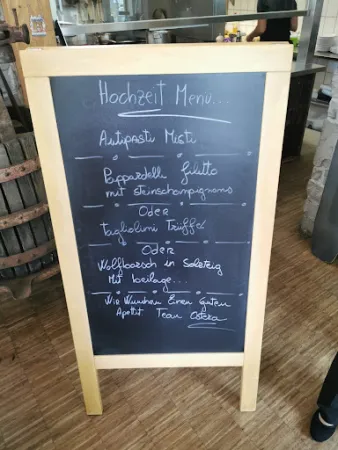 Hochzeit Menu...
Antipasti Misti
Pappardelle filetto
mit steinschampignons
Oder
Tagliolini Trüffel
Oder
Wolfbarsch in Salzteig
Mit beilage...
Wir Wünschen Einen Guten
Apettit Team Ostera